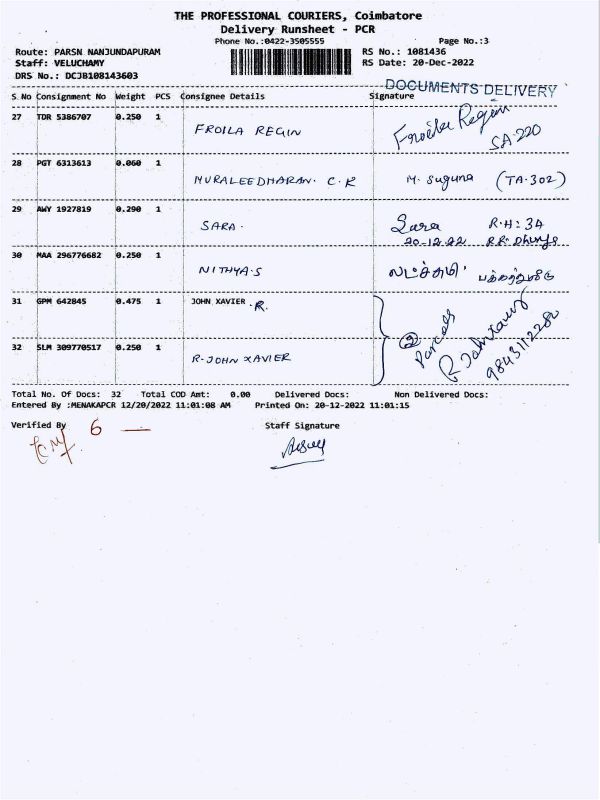 THE PROFESSIONAL COURIERS, Coimbatore
Delivery Runsheet - PCR
Phone No.:0422-3505555 Page No.:3
Route: PARSN NANJUNDAPURAM RS No.: 1081436
Staff: VELUCHAMY RS Date: 20-Dec-2022
DRS No.: DCJB108143603
DOCUMENTS DELIVERY
S.No Consignment No Weight PCS Consignee Details Signature
27 TDR 5386707 0.250 1 FROILA REGIN Froila Regin SA-220
28 PGT 6313613 0.060 1 MURALEEDHARAN. C. K M. Suguna (TA-302)
29 AWY 1927819 0.290 1 SARA. Sara R.H: 34
20-12-22
30 MAA 296776682 0.250 1 NITHYA.S லட்சுமி
31 GPM 642845 0.475 1 JOHN XAVIER .R.
2 Parcels
R. John Xavier
32 SLM 309770517 0.250 1 R-JOHN XAVIER
Total No. Of Docs: 32 Total COD Amt: 0.00 Delivered Docs: Non Delivered Docs:
Entered By :MENAKAPCR 12/20/2022 11:01:08 AM Printed On: 20-12-2022 11:01:15
Verified By Staff Signature
6 —